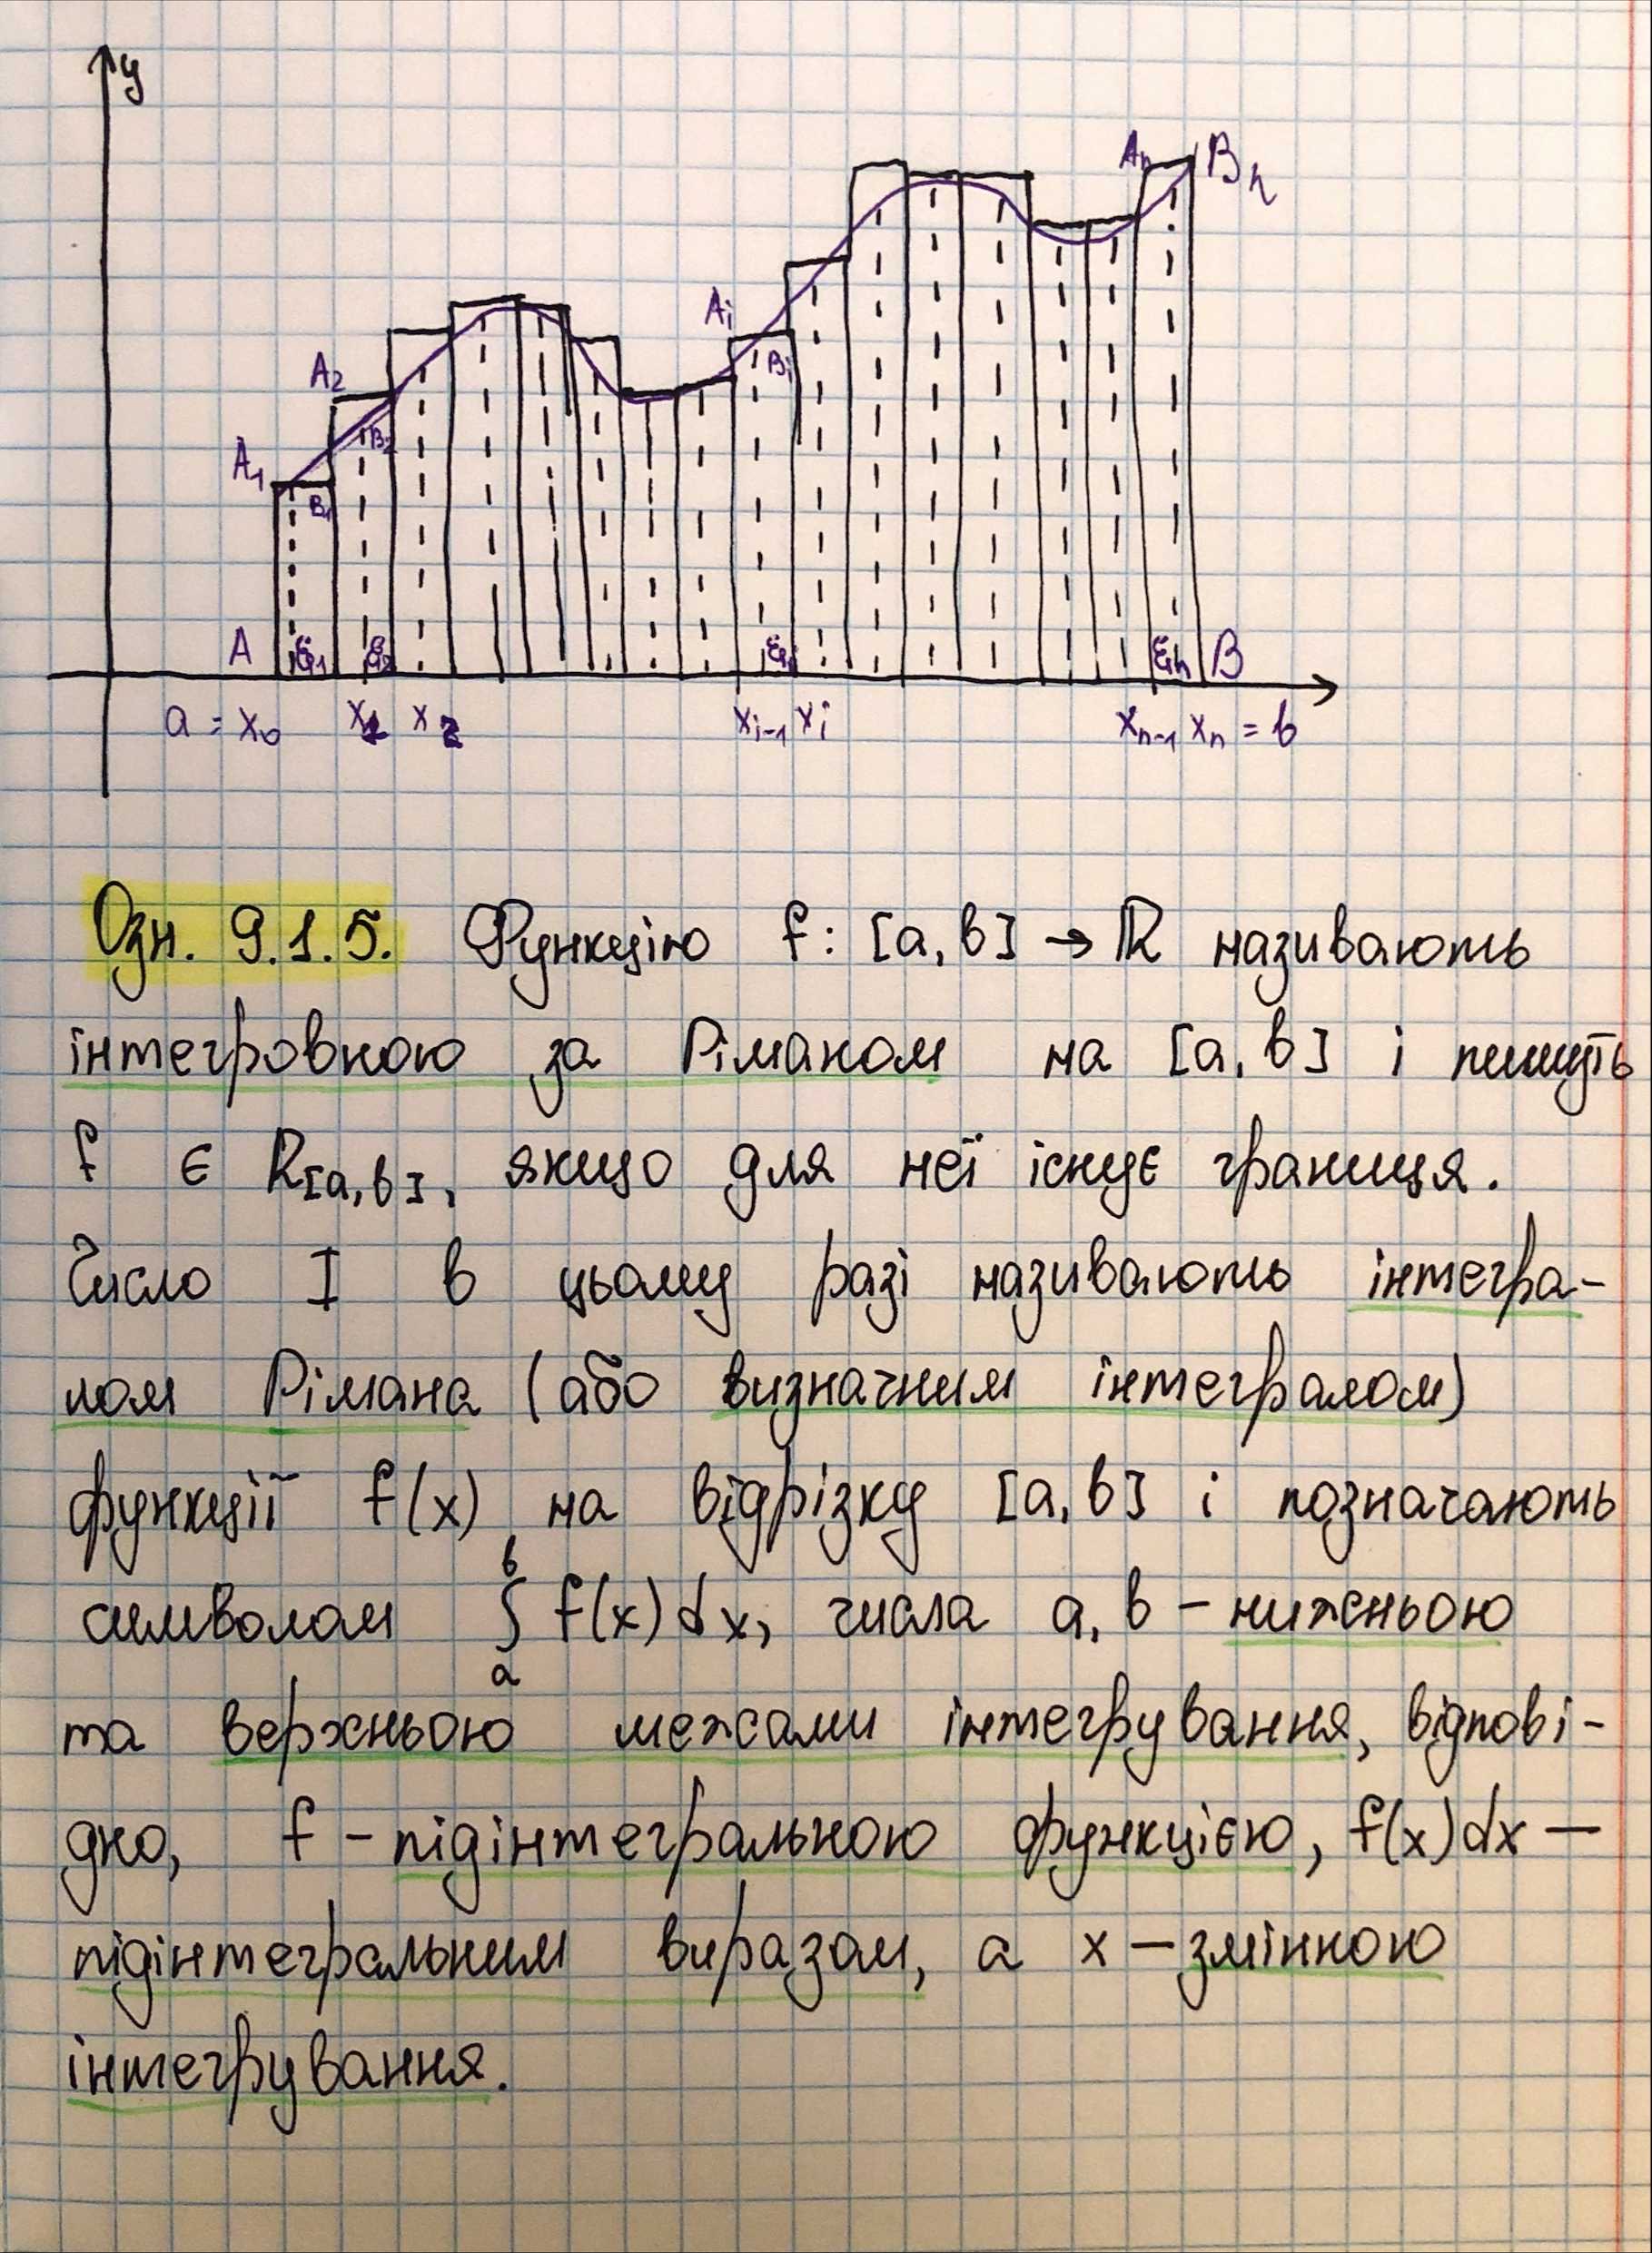 y
Aₙ Bₙ
Aᵢ
A₂ Bᵢ
B₂
A₁
B₁
A ξ₁ ξ₂ ξᵢ ξₙ B
a = x₀ x₁ x₂ xᵢ₋₁ xᵢ xₙ₋₁ xₙ = b
Озн. 9.1.5. Функцію f: [a, b] → ℝ називають
інтегровною за Ріманом на [a, b] і пишуть
f ∈ R[a, b], якщо для неї існує границя.
Число I в цьому разі називають інтегра-
лом Рімана (або визначним інтегралом)
функції f(x) на відрізку [a, b] і позначають
символом ∫ₐᵇ f(x)dx, числа a, b – нижньою
та верхньою межами інтегрування, відпові-
дно, f – підінтегральною функцією, f(x)dx –
підінтегральним виразом, а x – змінною
інтегрування.